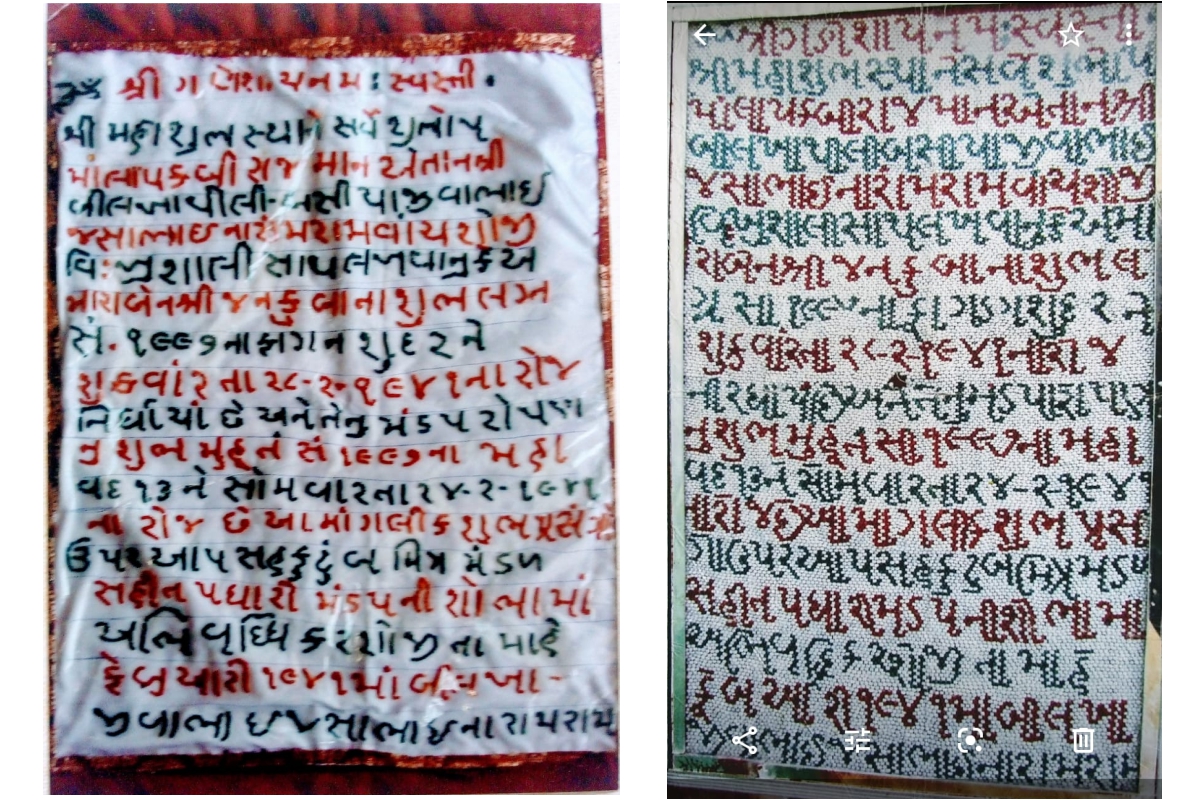 ૐ શ્રી ગણેશાયનમ: સ્વસ્તી.
શ્રી મહા શુભ સ્થાને સર્વે શુભોપ
માંલાપક બીરાજ માન એતાનશ્રી
બીલખાપીલી-બસીયા જીવાભાઈ
જસાભાઈ નારામરામવાંચશોજી
વિ:ખુશાલી સાથ લખવાનુંકેઅ
મારાબેનશ્રી જનકુબાના શુભ લગ્ન
સં. ૧૯૯૭ નાફાગન શુદ ૨ ને
શુક્રવાંર તા ૨૮-૨-૧૯૪૧ના રોજ
નિર્ધાયાં છે અનેતેનુ મંડપ રોપણ
નુ શુભ મુહૂર્ત સં ૧૯૯૭ના મહા
વદ ૧૩ ને સોમવારતા ૨૪-૨-૧૯૪૧
ના રોજ છે આ માંગલીક શુભ પ્રસંગ
ઉપર આપ સહકુટુંબ મિત્ર મંડળ
સહીત પધારી મંડપની શોભામાં
અભિવૃધ્ધિ કરશોજી તા માહે
ફેબ્રુઆરી ૧૯૪૧માં બીલખા-
જીવાભાઈજસાભાઈનારામરામ
શ્રીગણેશાયનમ:સ્વસ્તી
શ્રીમહાશુભસ્થાનેસર્વેશુભોપ
માંલાપકબીરાજમાનએતાનશ્રી
જસાભાઈનારામરામવાંચશોજી
રાબેનશ્રી જનકુબાનાશુભલ
ગ્ન સં ૧૯૯૭નાફાગણશુદ ૨ ને
શુક્રવારતા૨૮-૨-૧૯૪૧નારોજ
નુશુભમુહૂર્તસં૧૯૯૭નામહા
વદ૧૩નેસોમવારતા૨૪-૨-૧૯૪૧
નારોજછેઆમાંગલીકશુભપ્રસં
ગઉપરઆપસહકુટુંબમિત્રમંડળ
સહીતપધારીમંડપનીશોભામાં
અભિવૃદ્ધિકરશોજી તા માહે